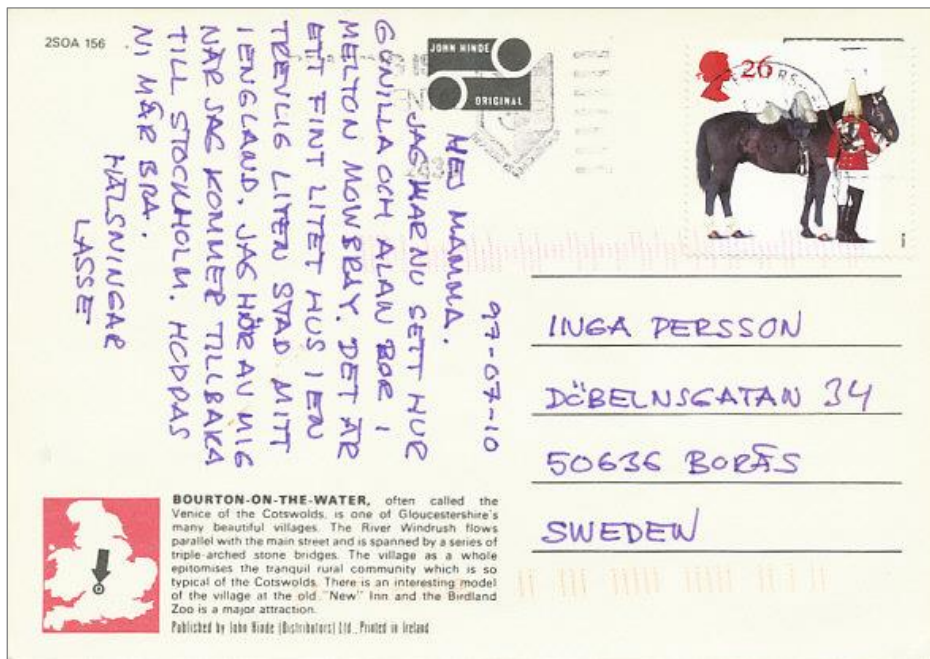 2SOA 156
JOHN HINDE
ORIGINAL
26
97-07-10
HEJ MAMMA.
JAG HAR NU SETT HUR
GUNILLA OCH ALAN BOR I
MELTON MOWBRAY. DET ÄR
ETT FINT LITET HUS I EN
TREVLIG LITEN STAD MITT
I ENGLAND. JAG HÖR AV MIG
NÄR JAG KOMMER TILLBAKA
TILL STOCKHOLM. HOPPAS
NI MÅR BRA.
HÄLSNINGAR
LASSE
INGA PERSSON
DÖBELNSGATAN 34
50636 BORÅS
SWEDEN
BOURTON-ON-THE-WATER, often called the
Venice of the Cotswolds, is one of Gloucestershire's
many beautiful villages. The River Windrush flows
parallel with the main street and is spanned by a series of
triple-arched stone bridges. The village as a whole
epitomises the tranquil rural community which is so
typical of the Cotswolds. There is an interesting model
of the village at the old "New" Inn and the Birdland
Zoo is a major attraction.
Published by John Hinde (Distributors) Ltd., Printed in Ireland